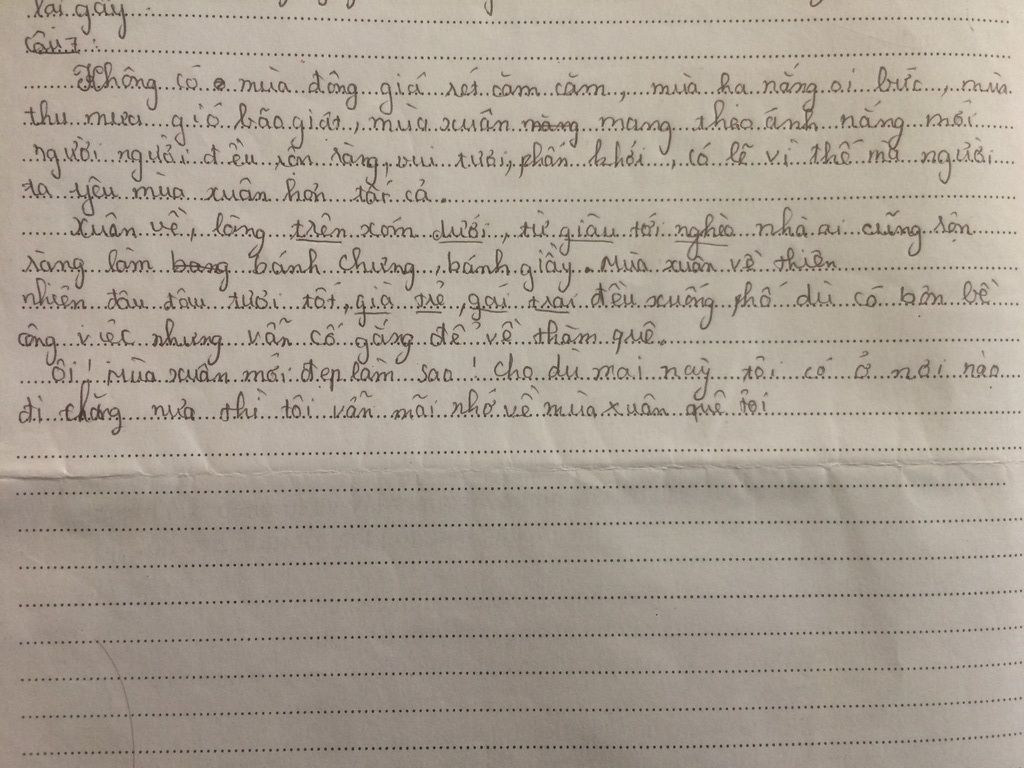 tai gãy
Câu 7:
Không có mùa đông giá rét căm căm, mùa hạ nắng oi bức, mùa
thu mưa gió bão giật, mùa xuân mang theo ánh nắng mới
người người đều rộn ràng, vui tươi, phấn khởi, có lẽ vì thế mà người
ta yêu mùa xuân hơn tất cả.
Xuân về, làng trên xóm dưới, từ giàu tới nghèo nhà ai cũng rộn
ràng làm bánh chưng, bánh giầy. Mùa xuân về thiên
nhiên đâu đâu tươi tốt, già trẻ, gái trai đều xuống phố dù có bận bề
công việc nhưng vẫn cố gắng để về thăm quê.
Ôi! Mùa xuân mới đẹp làm sao! Cho dù mai này tôi có ở nơi nào
đi chăng nưa thì tôi vẫn mãi nhớ về mùa xuân quê tôi